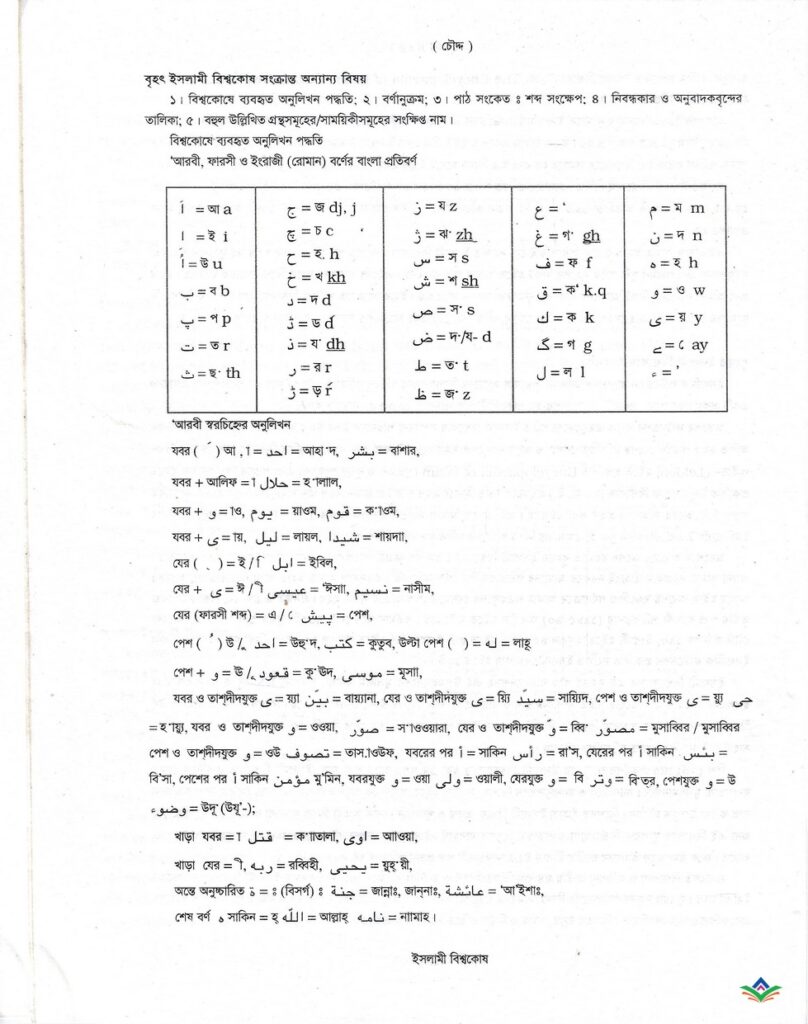 ( চৌদ্দ )
বৃহৎ ইসলামী বিশ্বকোষ সংক্রান্ত অন্যান্য বিষয়
১। বিশ্বকোষে ব্যবহৃত অনুলিখন পদ্ধতি; ২। বর্ণানুক্রম; ৩। পাঠ সংকেত ঃ শব্দ সংক্ষেপ; ৪। নিবন্ধকার ও অনুবাদকবৃন্দের
তালিকা; ৫। বহুল উল্লিখিত গ্রন্থসমূহের/সাময়িকীসমূহের সংক্ষিপ্ত নাম।
বিশ্বকোষে ব্যবহৃত অনুলিখন পদ্ধতি
'আরবী, ফারসী ও ইংরাজী (রোমান) বর্ণের বাংলা প্রতিবর্ণ
اَ = আ a
اِ = ই i
اُ = উ u
ب = ব b
پ = প p
ت = ত r
ث = ছ· th
ج = জ dj, j
چ = চ c
ح = হ. h
خ = খ kh
د = দ d
ڈ = ড d
ذ = য· dh
ر = র r
ڑ = ড় ŕ
ز = য z
ژ = ঝ· zh
س = স s
ش = শ sh
ص = স· s
ض = দ·/য- d
ط = ত· t
ظ = জ· z
ع = ‘
غ = গ· gh
ف = ফ f
ق = ক· k.q
ك = ক k
گ = গ g
ل = ল l
م = ম m
ن = ন n
ه = হ h
و = ও w
ى = য় y
ے = ে ay
ء = ’
'আরবী স্বরচিহ্নের অনুলিখন
যবর ( َ ) আ , া = احد = আহ·াদ, بشر = বাশার,
যবর + আলিফ = া حلال = হ·ালাল,
যবর + و = াও, يوم = য়াওম, قوم = ক·াওম,
যবর + ى = ায়, ليل = লায়ল, شيدا = শায়দা,
যের ( ِ ) = ই / ি ابل = ইবিল,
যের + ى = ঈ / ী عيسى = 'ঈসা, نسيم = নাসীম,
যের (ফারসী শব্দ) = এ / ে پيش = পেশ,
পেশ ( ُ ) উ / ু احد = উহ·ুদ, كتب = কুতুব, উল্টা পেশ ( ) = له = লাহূ
পেশ + و = ঊ / ূ قعود = কু·'ঊদ, موسى = মূসা,
যবর ও তাশ্‌দীদযুক্ত ى = য়্যা بيّن = বায়্যানা, যের ও তাশ্‌দীদযুক্ত ى = য়্যি سيّد = সায়্যিদ, পেশ ও তাশ্‌দীদযুক্ত ى = য়্যু حى
= হ·ায়্যু, যবর ও তাশ্‌দীদযুক্ত و = ওওয়া, صوّر = স·াওওয়ারা, যের ও তাশ্‌দীদযুক্ত وّ = ব্বি مصوّر = মুসাব্বির / মুসাব্বির
পেশ ও তাশ্‌দীদযুক্ত و = ওউ تصوف = তাস·াওউফ, যবরের পর أ = সাকিন رأس = রা'স, যেরের পর أ সাকিন بئس =
বি'সা, পেশের পর أ সাকিন مؤمن মু'মিন, যবরযুক্ত و = ওয়া ولى = ওয়ালী, যেরযুক্ত و = বি وتر = বি'ত্‌র, পেশযুক্ত و = উ
وضوء = উদূ·' (উযূ'-);
খাড়া যবর = া قتل = ক·াতালা, اوى = আাওয়া,
খাড়া যের = ী, ربه = রব্বিহী, يحيى = য়ুহ·য়ী,
অন্তে অনুচ্চারিত ة = ঃ (বিসর্গ) ঃ جنة = জান্নাঃ, জান্‌নাঃ, عائشة = 'আ'ইশাঃ,
শেষ বর্ণ ه সাকিন = হ্ اللّه = আল্লাহ্ نامه = নামাহ।
ইসলামী বিশ্বকোষ